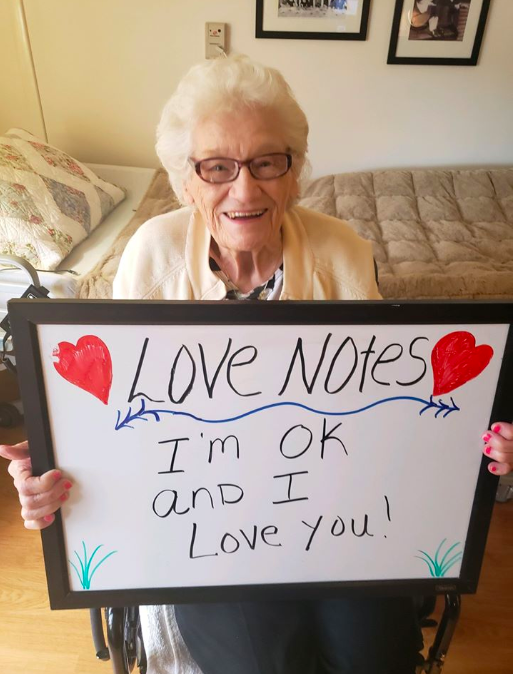 Love Notes
I'm OK
and I
Love you!